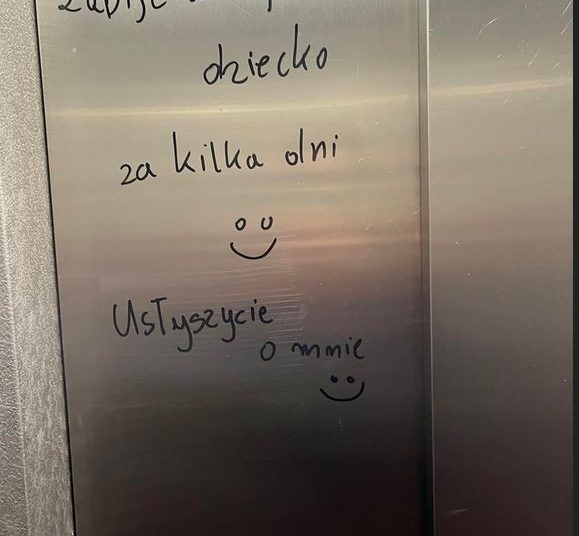 dziecko
za kilka dni
Usłyszycie
o mnie